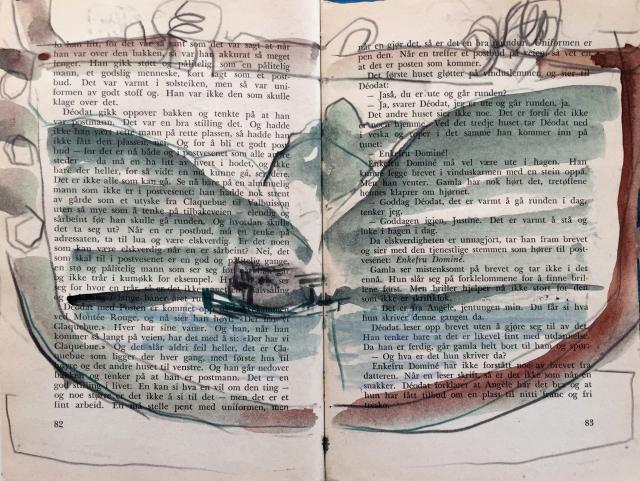 to han litt, for det var så sant som det var sagt at når
han var over den bakken, så var han akkurat så meget
lenger. Han gikk støtt og pålitelig som en pålitelig
mann, et godslig menneske, kort sagt som et post-
bud. Det var varmt i solsteiken, men så var uni-
formen av godt stoff og. Han var ikke den som skulle
klage over det.
Déodat gikk oppover bakken og tenkte på at han
var postmann. Det var en bra stilling det. Og hadde
ikke han vært rette mann på rette plassen, så hadde han
ikke fått den plassen, nei. Og for å bli et godt post
bud — for det er nå både og i postvesenet som alle andre
steder — da må en ha litt vett i hodet, og ikke
bare det heller, for så vidt en må kunne gå, så å være.
Det er ikke alle som kan gå. Se nå bare på en alminnelig
mann som ikke er i postvesenet: han hadde nok stent
av gårde som et utyske fra Claquebue til Valbuisson
uten så mye som å tenke på tilbakeveien — elendig og
sårbeint han skulle gå runden. Og hvordan skulle
det ta seg ut? Når en er postbud, må en tenke på
adressaten, ta til lua og være elskverdig. Er det noen
som kan være elskverdig når en er sårbeint? Nei, det
som skal til i postvesenet er en god og pålitelig gange,
en stø og pålitelig mann som ser seg for
og ikke trår i kumøkk for eksempel.
seg for hvor en trår,
Déodat med posten er kommet opp
ved Montée Rouge, og nå sier han høyt: «Det er
Claquebue.» Hver har sine vaner. Og han, når han
kommer så langt på veien, har det med å si: «Der har vi
Claquebue.» Og det slår aldri feil heller, det er Cla-
quebue som ligger der hver gang, med første hus til
høyre og det andre huset til venstre. Og han går nedover
bakken og tenker på at han er postmann. Det er en
god stilling i livet. En kan si hva en vil om den ting —
og noe større er det ikke å si til det — men det er et
fint arbeid. En må stelle pent med uniformen, men
82
når en gjør det, så er det en bra mundur. Uniformen er
pen den. Når en treffer et postbud på veien, så vet en
at det er posten som kommer.
Det første huset gløtter på vinduslemmen og sier til
Déodat:
— Jaså, du er ute og går runden?
— Ja, svarer Déodat, jeg er ute og går runden, ja.
Det andre huset sier ikke noe. Det er fordi det ikke
er noen hjemme. Ved det tredje huset tar Déodat ned
i veska og roper i det samme han kommer inn på
tunet:
— Enkefru Dominé!
Enkefru Dominé må vel være ute i hagen. Han
kunne legge brevet i vinduskarmen med en stein oppå.
Men han venter. Gamla har nok hørt det, tretøflene
hennes klaprer om hjørnet.
— Goddag Déodat, det er varmt å gå runden i dag,
tenker jeg.
— Goddagen igjen, Justine. Det er varmt å stå og
luke i hagen i dag.
Da elskverdigheten er unnagjort, tar han fram brevet
og sier med den tjenstligste stemmen som hører til post-
vesenet: Enkefru Dominé.
Gamla ser mistenksomt på brevet og tar ikke i det
ennå. Hun slår seg på forklelommene for å finne bril-
lene sine. Men briller hjelper nå ikke stort for den
som ikke er skriftklok.
— Det er fra Angèle, jentungen min. Du får si hva
hun skriver denne gangen da.
Déodat leser opp brevet uten å gjøre seg til av det.
Han tenker bare at det er likevel fint med utdannelse.
Da han er ferdig, gir gamla helt bort til han og spør:
— Og hva er det hun skriver da?
Enkefru Dominé har ikke forstått noe av brevet fra
datteren. Når en leser skrift, så er det ikke som når en
snakker. Déodat forklarer at Angèle har det bra og at
hun har fått tilbud om en plass til nitti franc og fri
tresko.
83